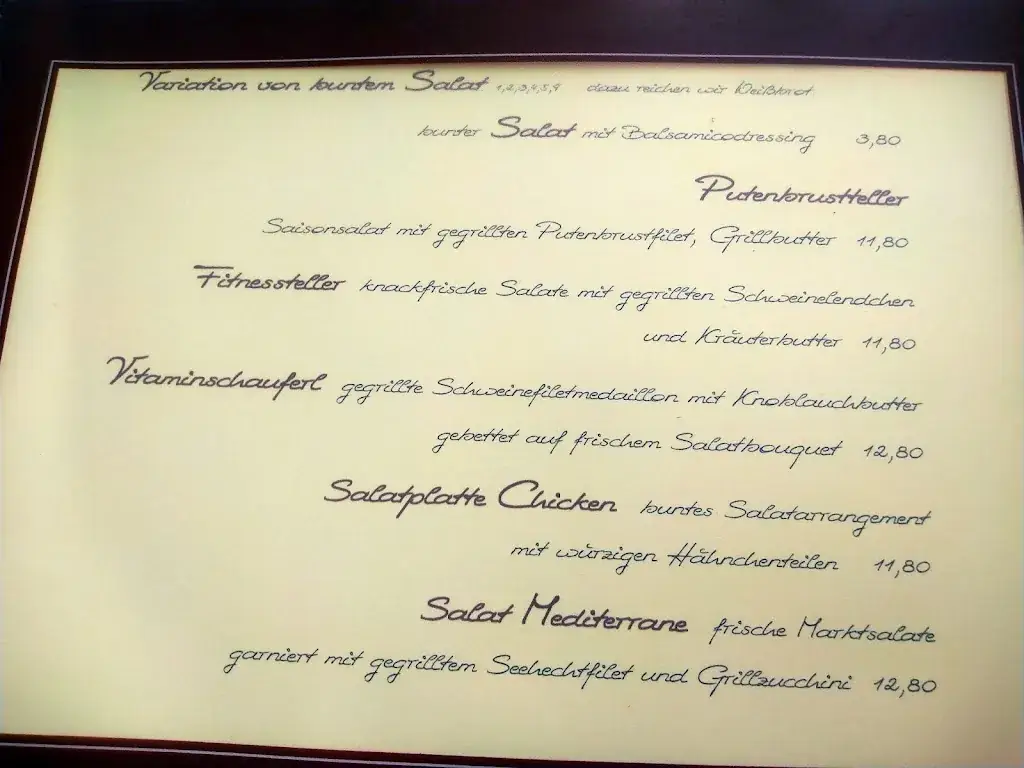 Variation von buntem Salat 1,2,3,4,5,9 dazu reichen wir Weißbrot
bunter Salat mit Balsamicodressing 3,80
Putenbrustteller
Saisonsalat mit gegrillten Putenbrustfilet, Grillbutter 11,80
Fitnessteller knackfrische Salate mit gegrillten Schweinelendchen
und Kräuterbutter 11,80
Vitaminschauferl gegrillte Schweinefiletmedaillon mit Knoblauchbutter
gebettet auf frischem Salatbouquet 12,80
Salatplatte Chicken buntes Salatarrangement
mit würzigen Hähnchenteilen 11,80
Salat Mediterrane frische Marktsalate
garniert mit gegrilltem Seehechtfilet und Grillzucchini 12,80